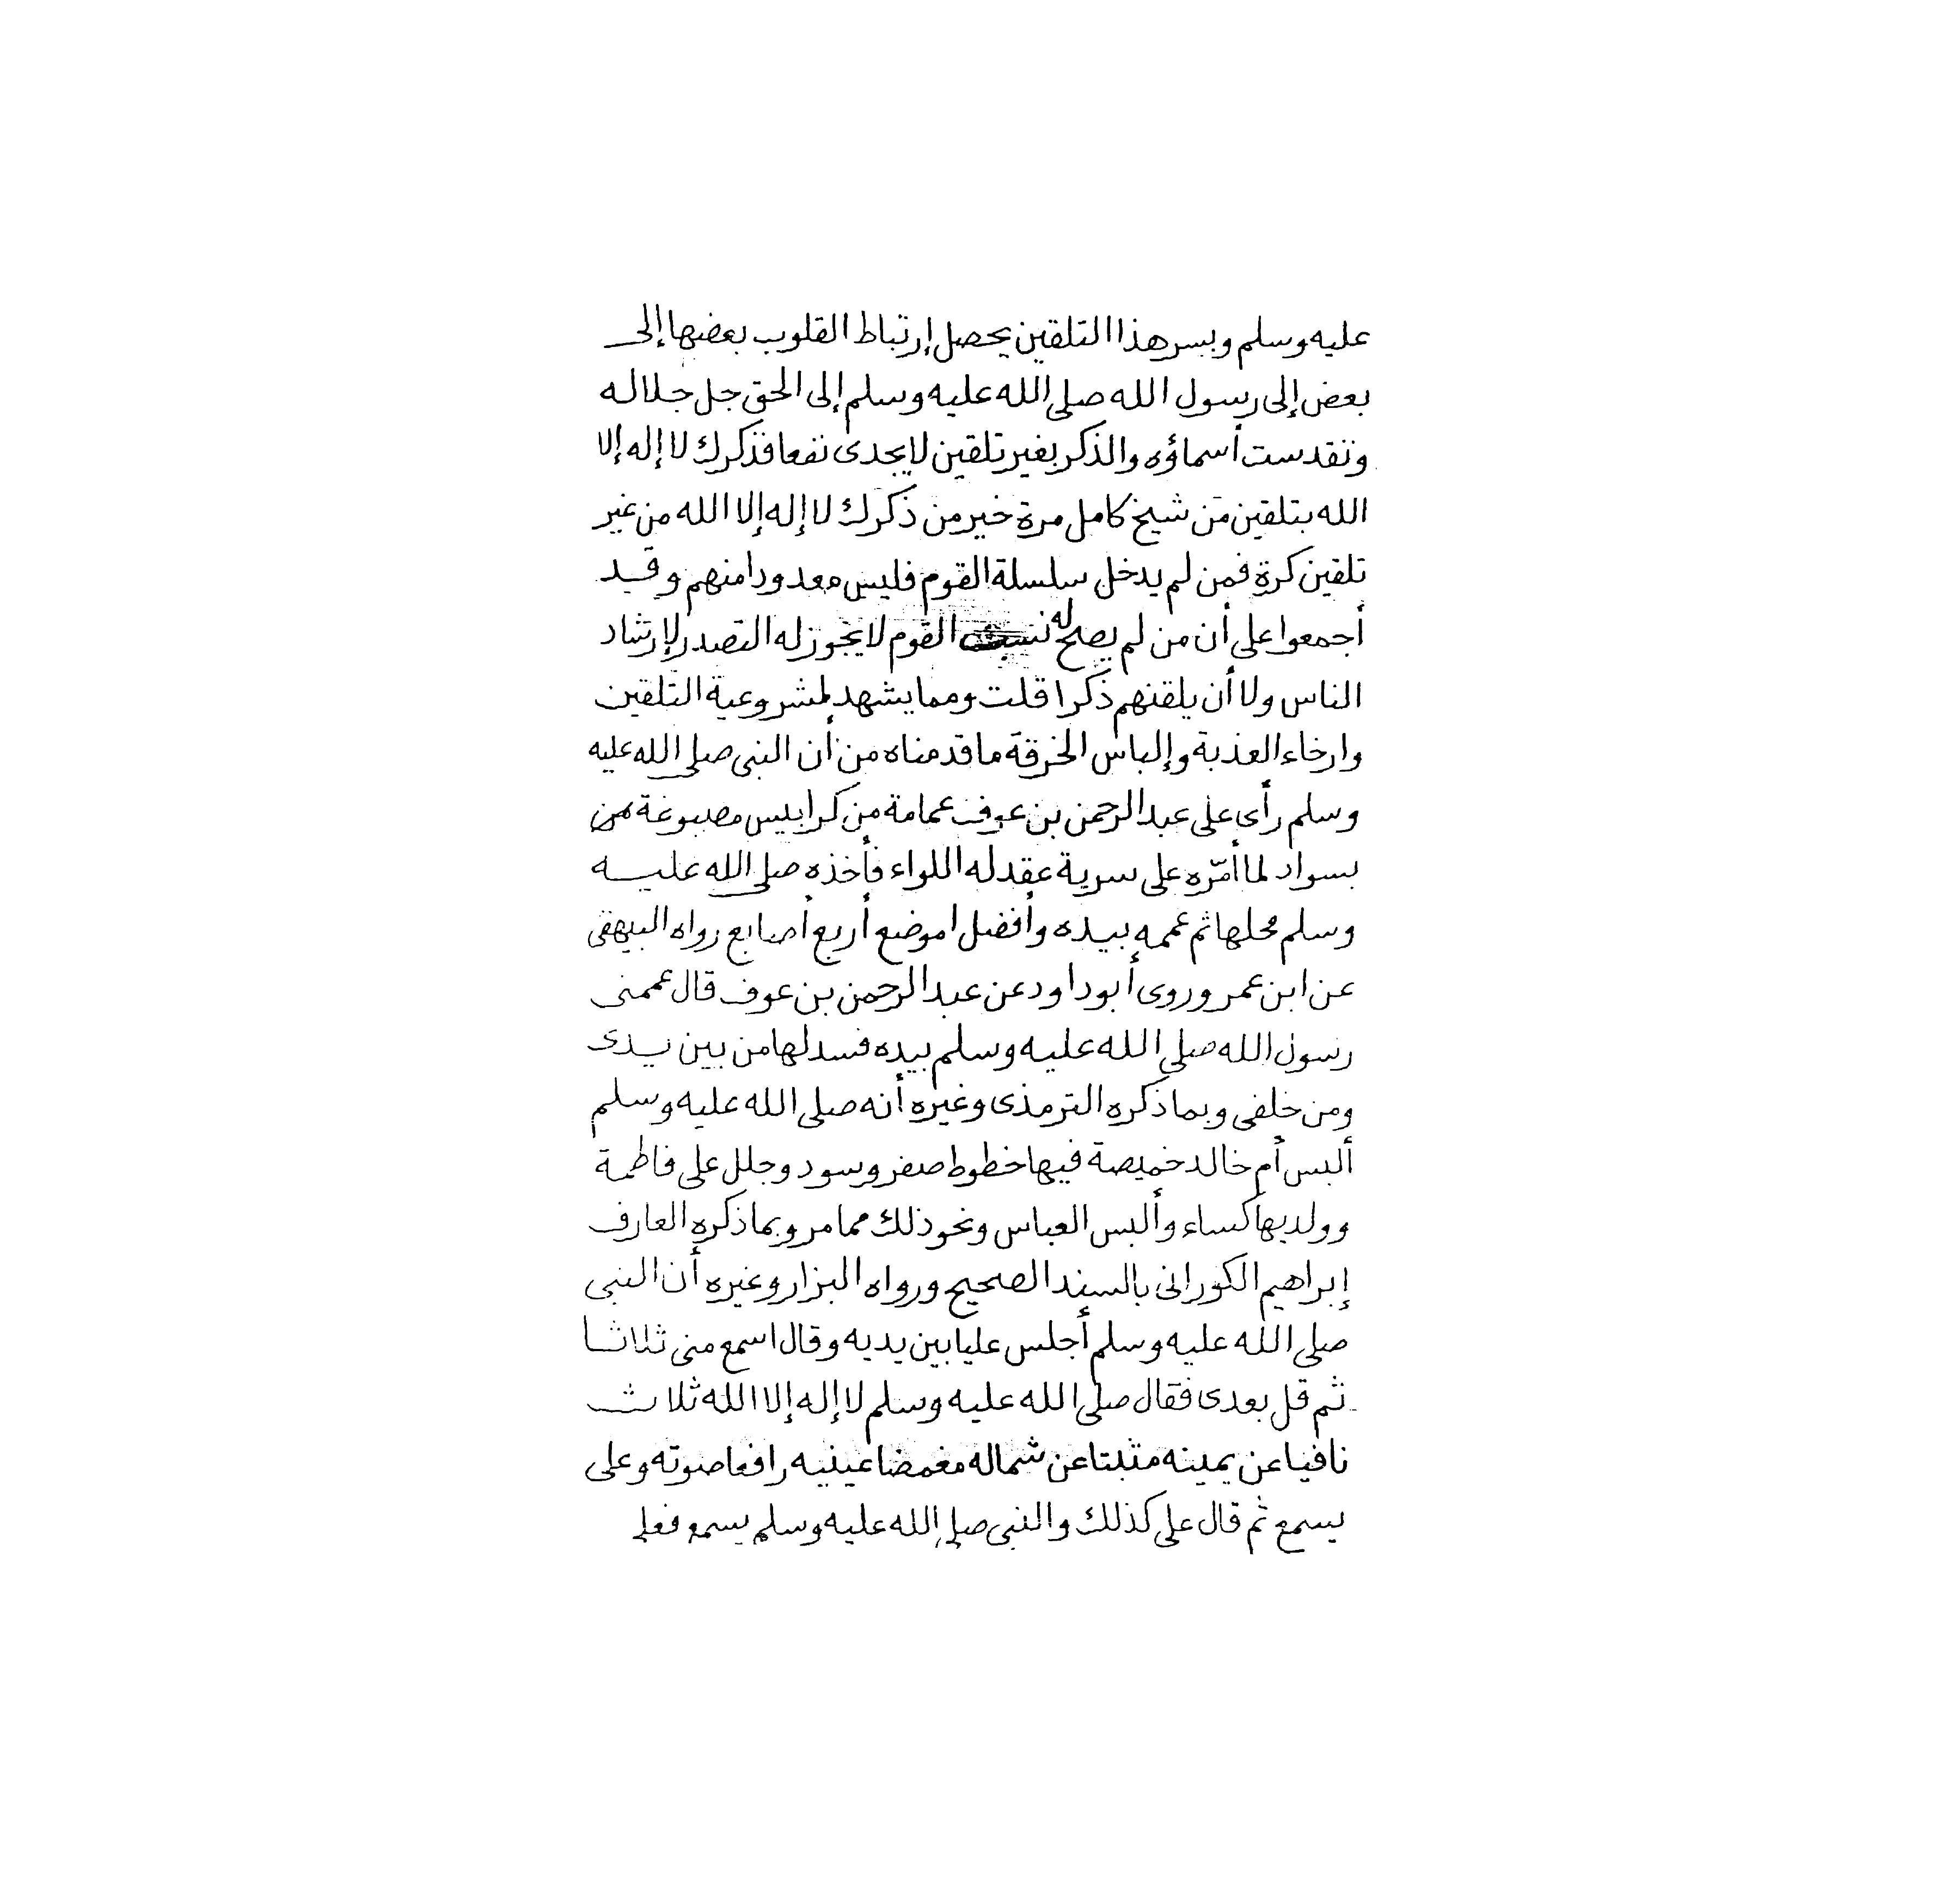 عليه وسلم وبسر هذا التلقين يحصل إرتباط القلوب بعضها إلى
بعض إلى رسول الله صلى الله عليه وسلم إلى الحق جل جلاله
وتقدست أسماؤه والذكر بغير تلقين لا يجدى نفعا فذكرك لا إله إلا
الله بتلقين من شيخ كامل مرة خير من ذكرك لا إله إلا الله من غير
تلقين كرة فمن لم يدخل سلسلة القوم فليس معدودا منهم وقد
أجمعوا على أن من لم يصح له القوم لا يجوز له التصدر لإرشاد
الناس ولا أن يلقنهم ذكرا قلت ومما يشهد لمشروعية التلقين
وارخاء العذبة وإلباس الخرقة ما قدمناه من أن النبى صلى الله عليه
وسلم رأى على عبد الرحمن بن عوف عمامة من كرابيس مصبوغة من
بسواد لما أمّره على سرية عقد له اللواء فأخذه صلى الله عليه
وسلم محلها ثم عممه بيده وأفضل اموضع أربع أصابع رواه البيهقى
عن ابن عمر وروى أبو داود عن عبد الرحمن بن عوف قال عممنى
رسول الله صلى الله عليه وسلم بيده فسدلها من بين يدى
ومن خلفى وبما ذكره الترمذى وغيره أنه صلى الله عليه وسلم
ألبس أم خالد خميصة فيها خطوط صفر وسود وجلل على فاطمة
وولديها كساء وألبس العباس ونحو ذلك مما مر وبما ذكره العارف
إبراهيم الكورانى بالسند الصحيح ورواه البزار وغيره أن النبى
صلى الله عليه وسلم أجلس عليا بين يديه وقال اسمع منى ثلاثا
ثم قل بعدى فقال صلى الله عليه وسلم لا إله إلا الله ثلاث
نافيا عن يمينه مثبتا عن شماله مغمضا عينيه رافعا صوته وعلى
يسمع ثم قال على كذلك والنبى صلى الله عليه وسلم يسمع فعلى